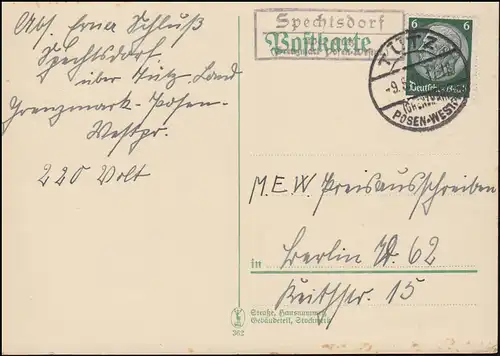 Abs. Erna Schluß
Spechtsdorf
über Tütz-Land
Grenzmark-Posen-
Westpr.
220 Volt
Spechtsdorf
Postkarte
TÜTZ
POSEN-WESTPR.
6 6
Deutsches Reich
M.E.W. Preisausschreiben
in Berlin W. 62
Keithstr. 15
Straße, Hausnummer,
Gebäudeteil, Stockwerk
362